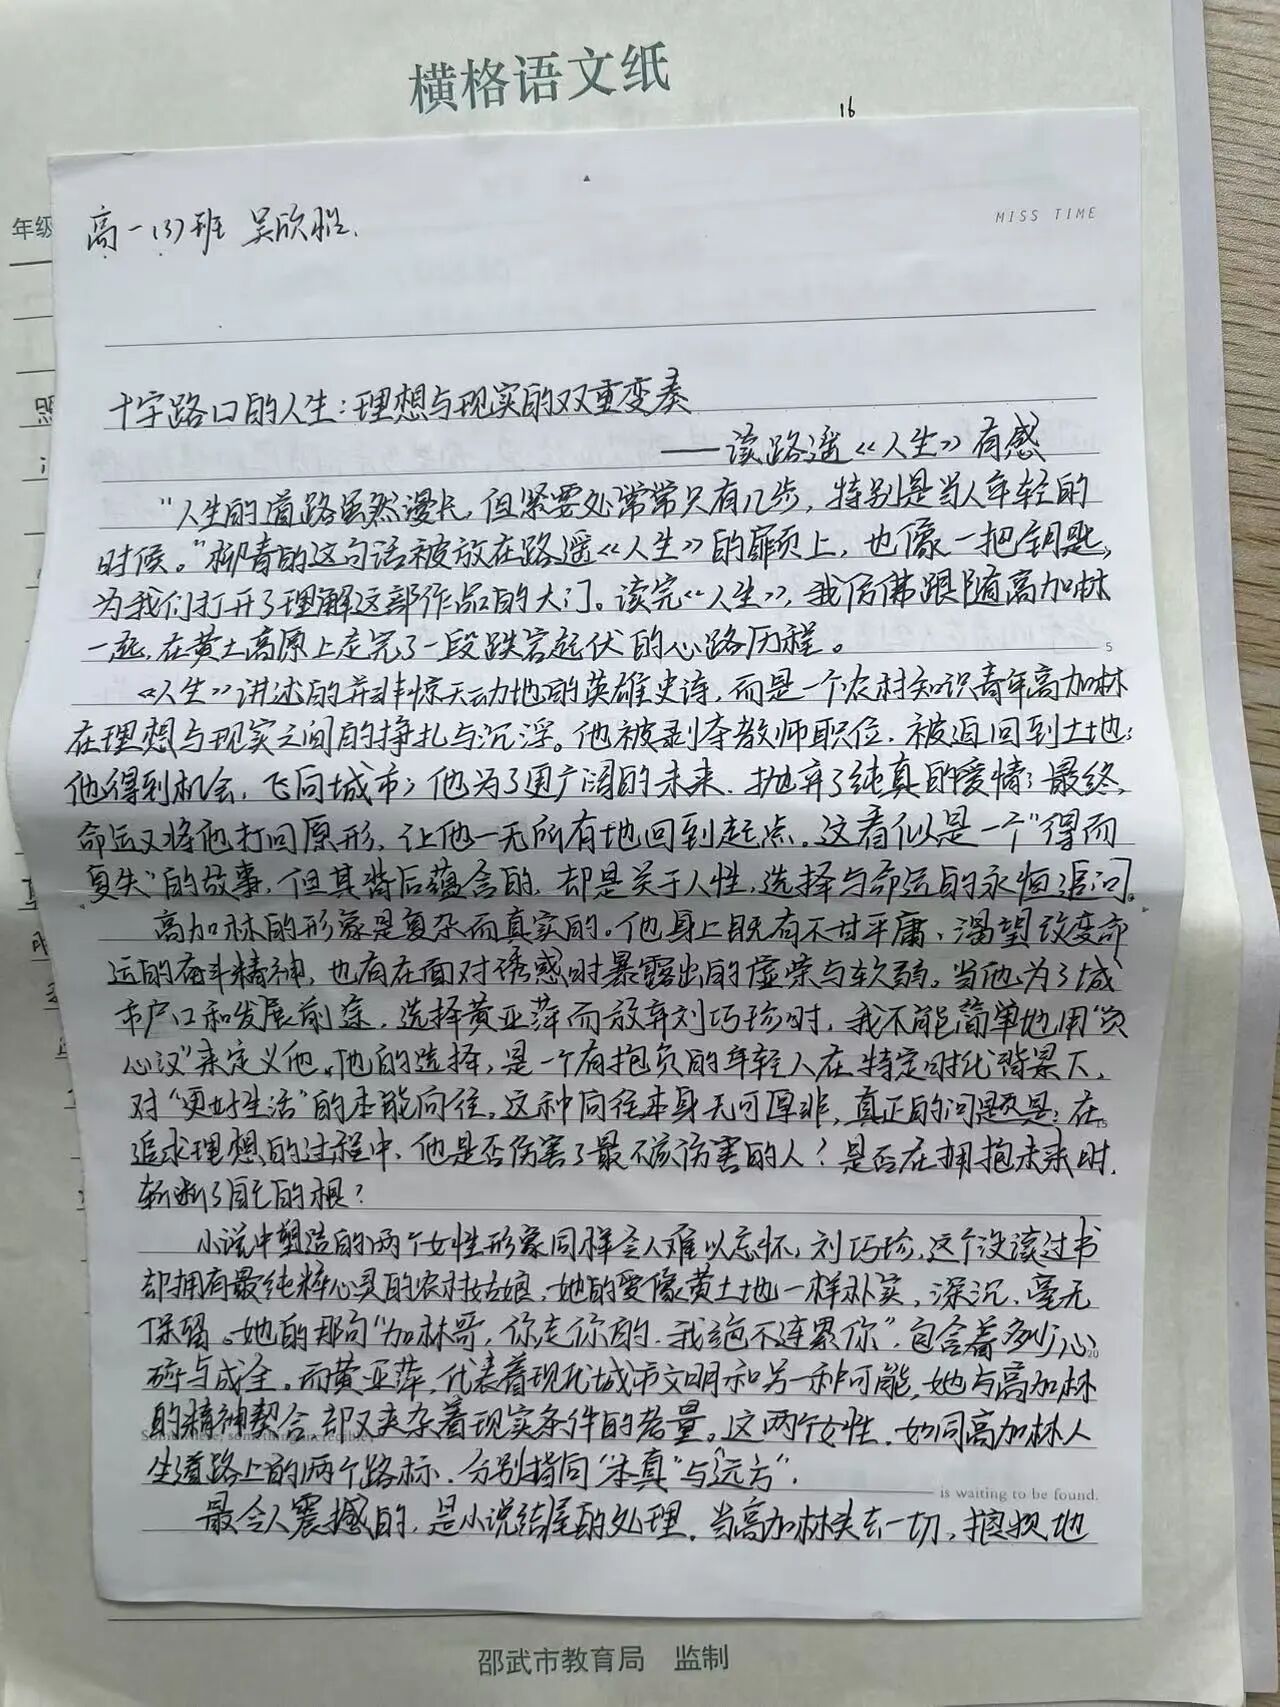 横格语文纸
16
MISS TIME
年级
高一(3)班 吴欣
十字路口的人生:理想与现实的双重变奏
——读路遥《人生》有感
"人生的道路虽然漫长,但紧要处常常只有几步,特别是当人年轻的
时候。"柳青的这句话被放在路遥《人生》的扉页上,也像一把钥匙,
为我们打开了理解这部作品的大门。读完《人生》,我仿佛跟随高加林
一起,在黄土高原上走完了一段跌宕起伏的心路历程。
5
《人生》讲述的并非惊天动地的英雄史诗,而是一个农村知识青年高加林
在理想与现实之间的挣扎与沉浮。他被剥夺教师职位,被迫回到土地;
他得到机会,飞向城市;他为了更广阔的未来,抛弃了纯真的爱情;最终,
命运又将他打回原形,让他一无所有地回到起点。这看似是一个"得而
复失"的故事,但其背后蕴含的,却是关于人性,选择与命运的永恒追问。
高加林的形象是复杂而真实的。他身上既有不甘平庸、渴望改变命
运的奋斗精神,也有在面对诱惑时暴露出的虚荣与软弱。当他为了城
市户口和发展前途,选择黄亚萍而放弃刘巧珍时,我不能简单地用"负
心汉"来定义他。他的选择,是一个有抱负的年轻人在特定时代背景下,
对"更好生活"的本能向往。这种向往本身无可厚非,真正的问题是:在
追求理想的过程中,他是否伤害了最不该伤害的人?是否在拥抱未来时,
斩断了自己的根?
小说中塑造的两个女性形象同样令人难以忘怀,刘巧珍,这个没读过书
却拥有最纯粹心灵的农村姑娘,她的爱像黄土地一样朴实,深沉、毫无
保留。她的那句"加林哥,你走你的,我绝不连累你",包含着多少心
20
碎与成全。而黄亚萍,代表着现代城市文明和另一种可能,她与高加林
的精神契合,却又夹杂着现实条件的考量。这两个女性,如同高加林人
生道路上的两个路标,分别指向"本真"与"远方".
is waiting to be found.
最令人震撼的,是小说结尾的处理,当高加林失去一切,狼狈地
邵武市教育局 监制